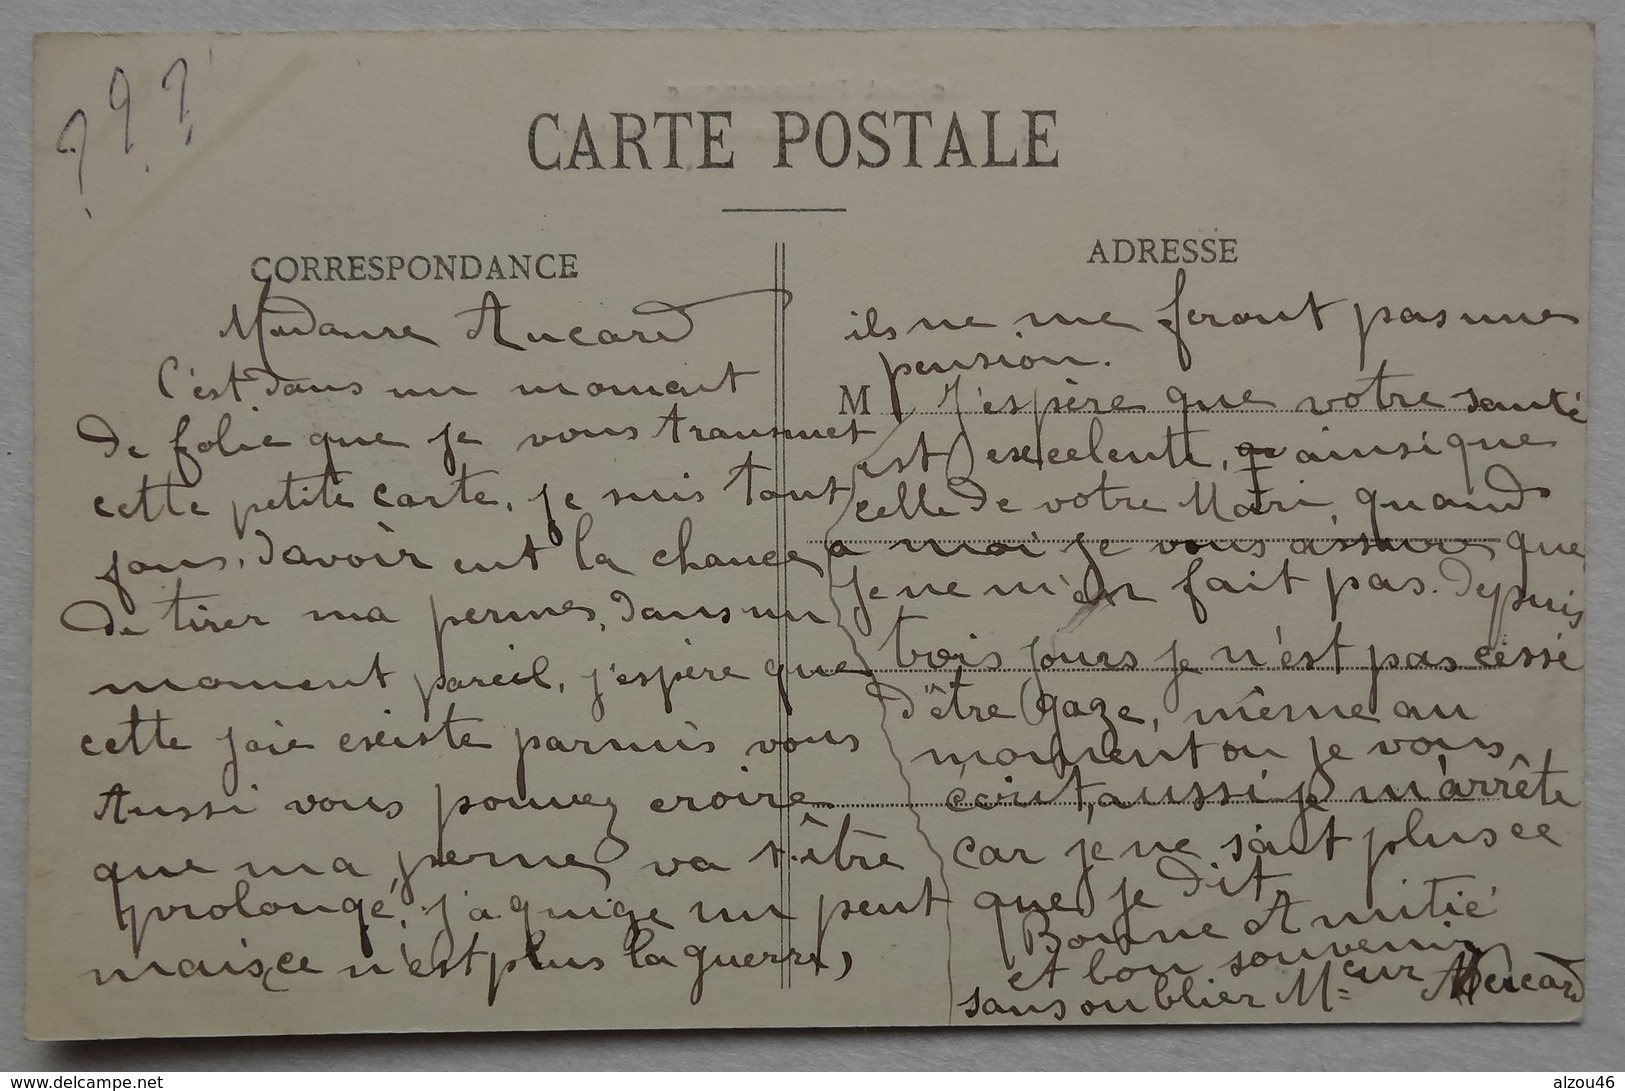 ? ? ?
CARTE POSTALE
CORRESPONDANCE
Madame Aucard
C'est dans un moment
de folie que je vous transmet
cette petite carte, je suis tout
joues, d'avoir eut la chance
de tirer ma permes, dans un
moment pareil, j'espère que
cette joie existe parmis vous
Aussi vous pouvez croire
que ma perme va t'être
prolongé, j'aquige un peut
mais ce n'est plus la guerre,
ADRESSE
ils ne me feront pas une
pension.
M J'espère que votre santé
est excelente, ainsi que
celle de votre Mari, quand
a moi je vous assure que
je ne m'en fait pas. depuis
trois jours je n'est pas cessé
d'être gaze, même au
moment ou je vous
écrit, aussi je m'arrête
car je ne sait plus ce
que je dit
Bonne Amitié
et bon souvenir
sans oublier Mr Aucard
www.delcampe.net
alzou46